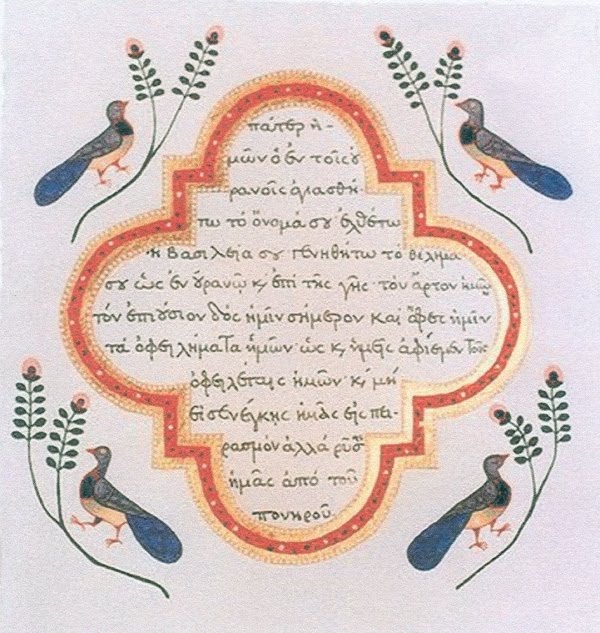 πάτερ ἡ-
μῶν ὁ ἐν τοῖς ȣ
ρανοῖς ἁγιασθή
τω τὸ ὄνομά σȣ ἐλθέτω
ἡ βασιλεία σȣ γενηθήτω τὸ θέλημα
σȣ ὡς ἐν ȣρανῷ κ, ἐπὶ τῆς γῆς· τὸν ἄρτον ἡμῶ
τὸν ἐπιȣσιον δὸς ἡμῖν σήμερον καὶ ἄφες ἡμῖν
τὰ ὀφειλήματα ἡμῶν· ὡς κ, ἡμεῖς ἀφίεμεν τοῖς
ὀφειλέταις ἡμῶν· κ, μὴ
εἰσενέγκῃς ἡμᾶς εἰς πει-
ρασμὸν ἀλλὰ ῥῦσ
ἡμᾶς ἀπὸ τοῦ
πονηροῦ.